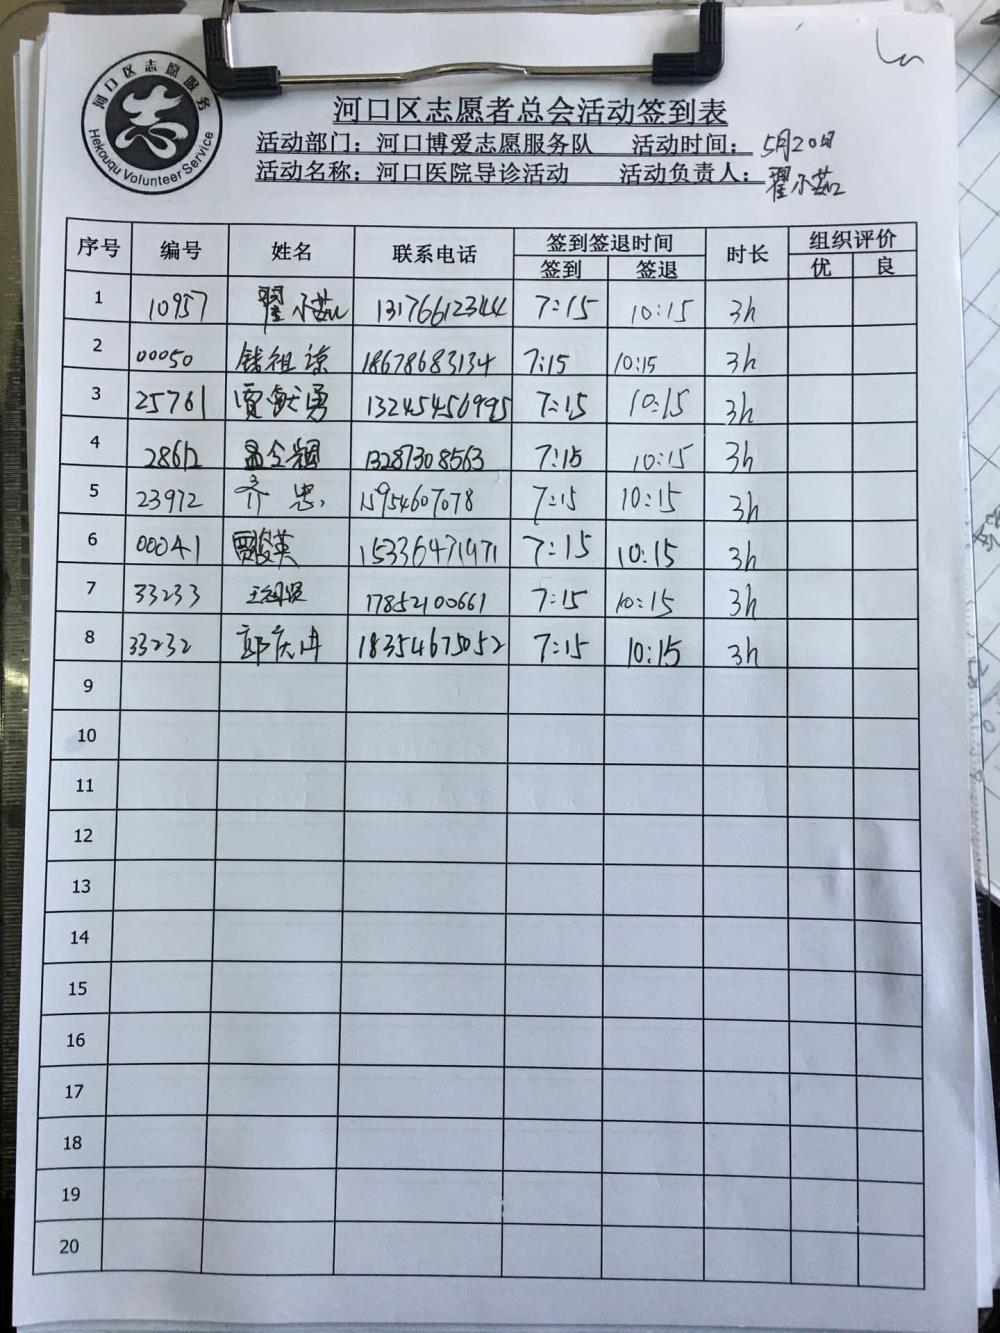 河口区志愿服务
志
Hekouqu Volunteer Service
河口区志愿者总会活动签到表
活动部门：河口博爱志愿服务队 活动时间：5月20日
活动名称：河口医院导诊活动 活动负责人：翟小茹
序号 编号 姓名 联系电话 签到签退时间 时长 组织评价
签到 签退 优 良
1 10957 翟小茹 13176612344 7:15 10:15 3h
2 00050 钱祖谅 18678683134 7:15 10:15 3h
3 25761 贾献勇 13245456995 7:15 10:15 3h
4 28612 孟令 13287308563 7:15 10:15 3h
5 23912 齐忠 15954607078 7:15 10:15 3h
6 00041 贾俊英 15336471971 7:15 10:15 3h
7 33233 王 17852100661 7:15 10:15 3h
8 33232 郭庆冉 18354675052 7:15 10:15 3h
9
10
11
12
13
14
15
16
17
18
19
20